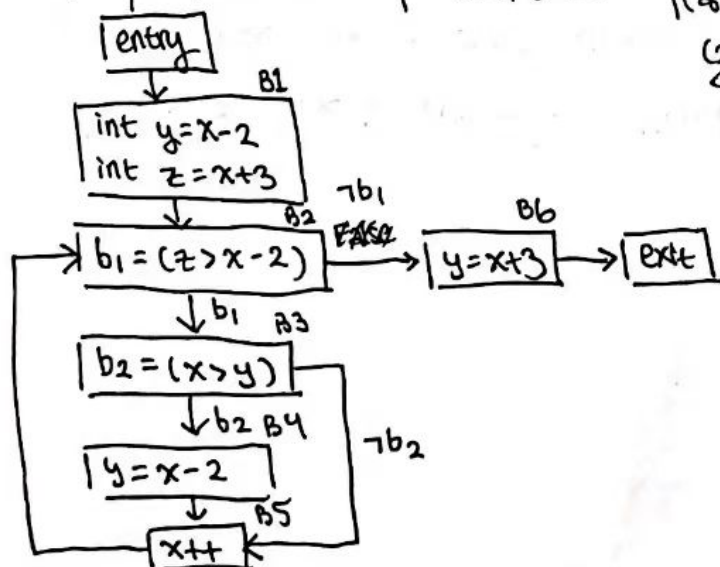 entry
B1
int y=x-2
int z=x+3
B2
¬b1
b1=(z>x-2)
B6
y=x+3
exit
b1
B3
b2=(x>y)
b2
B4
¬b2
y=x-2
B5
x++